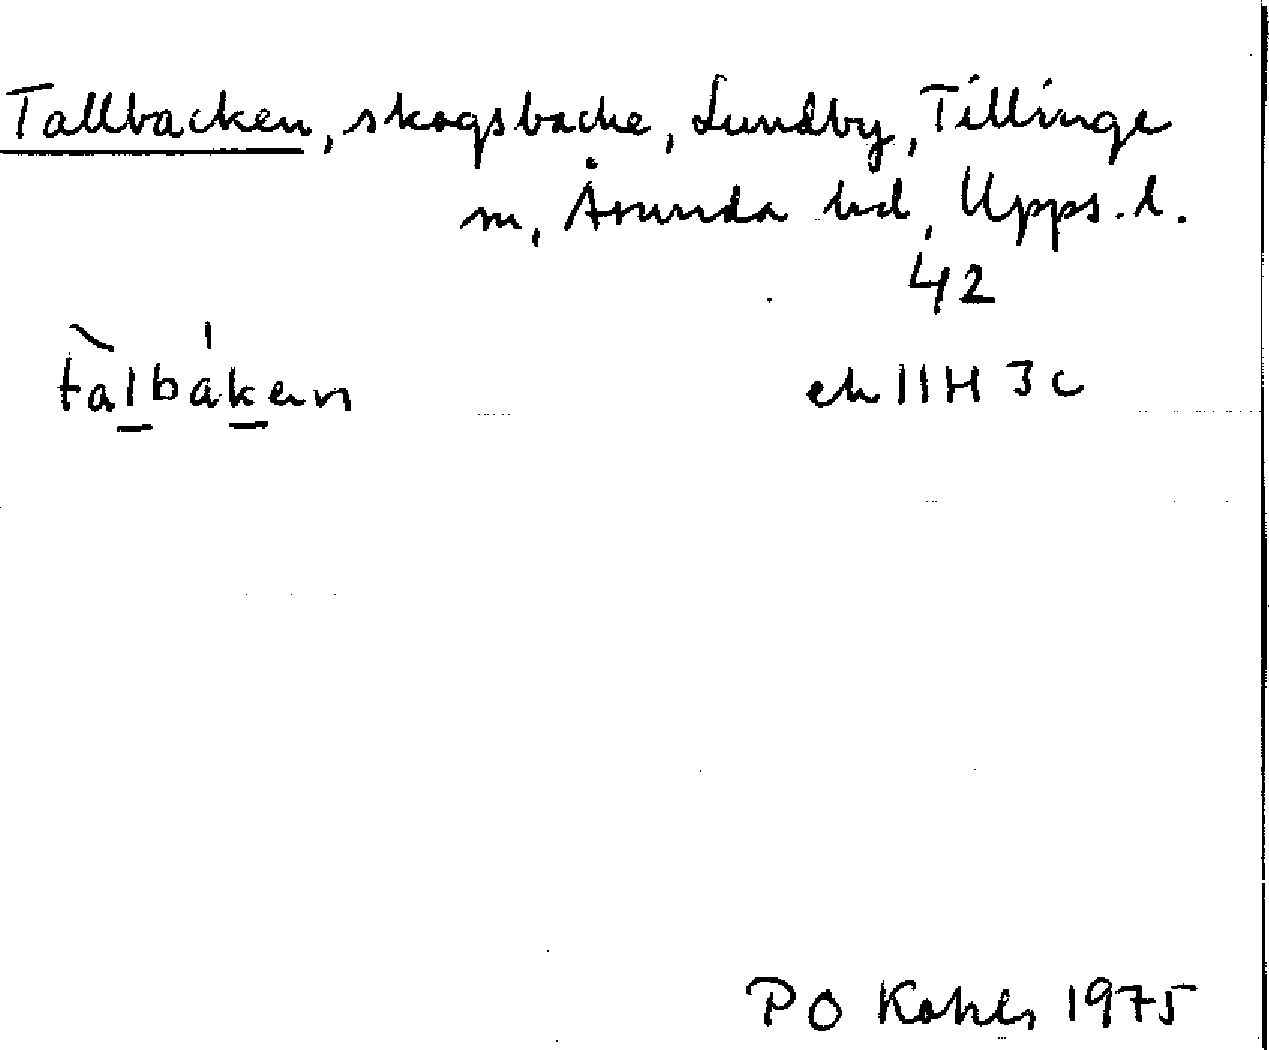 Tallbacken, skogsbacke, Lundby, Tillinge
sn, Åsunda hd, Upps. l.
42
tàlbáken ek 11H 3c
P O 1975